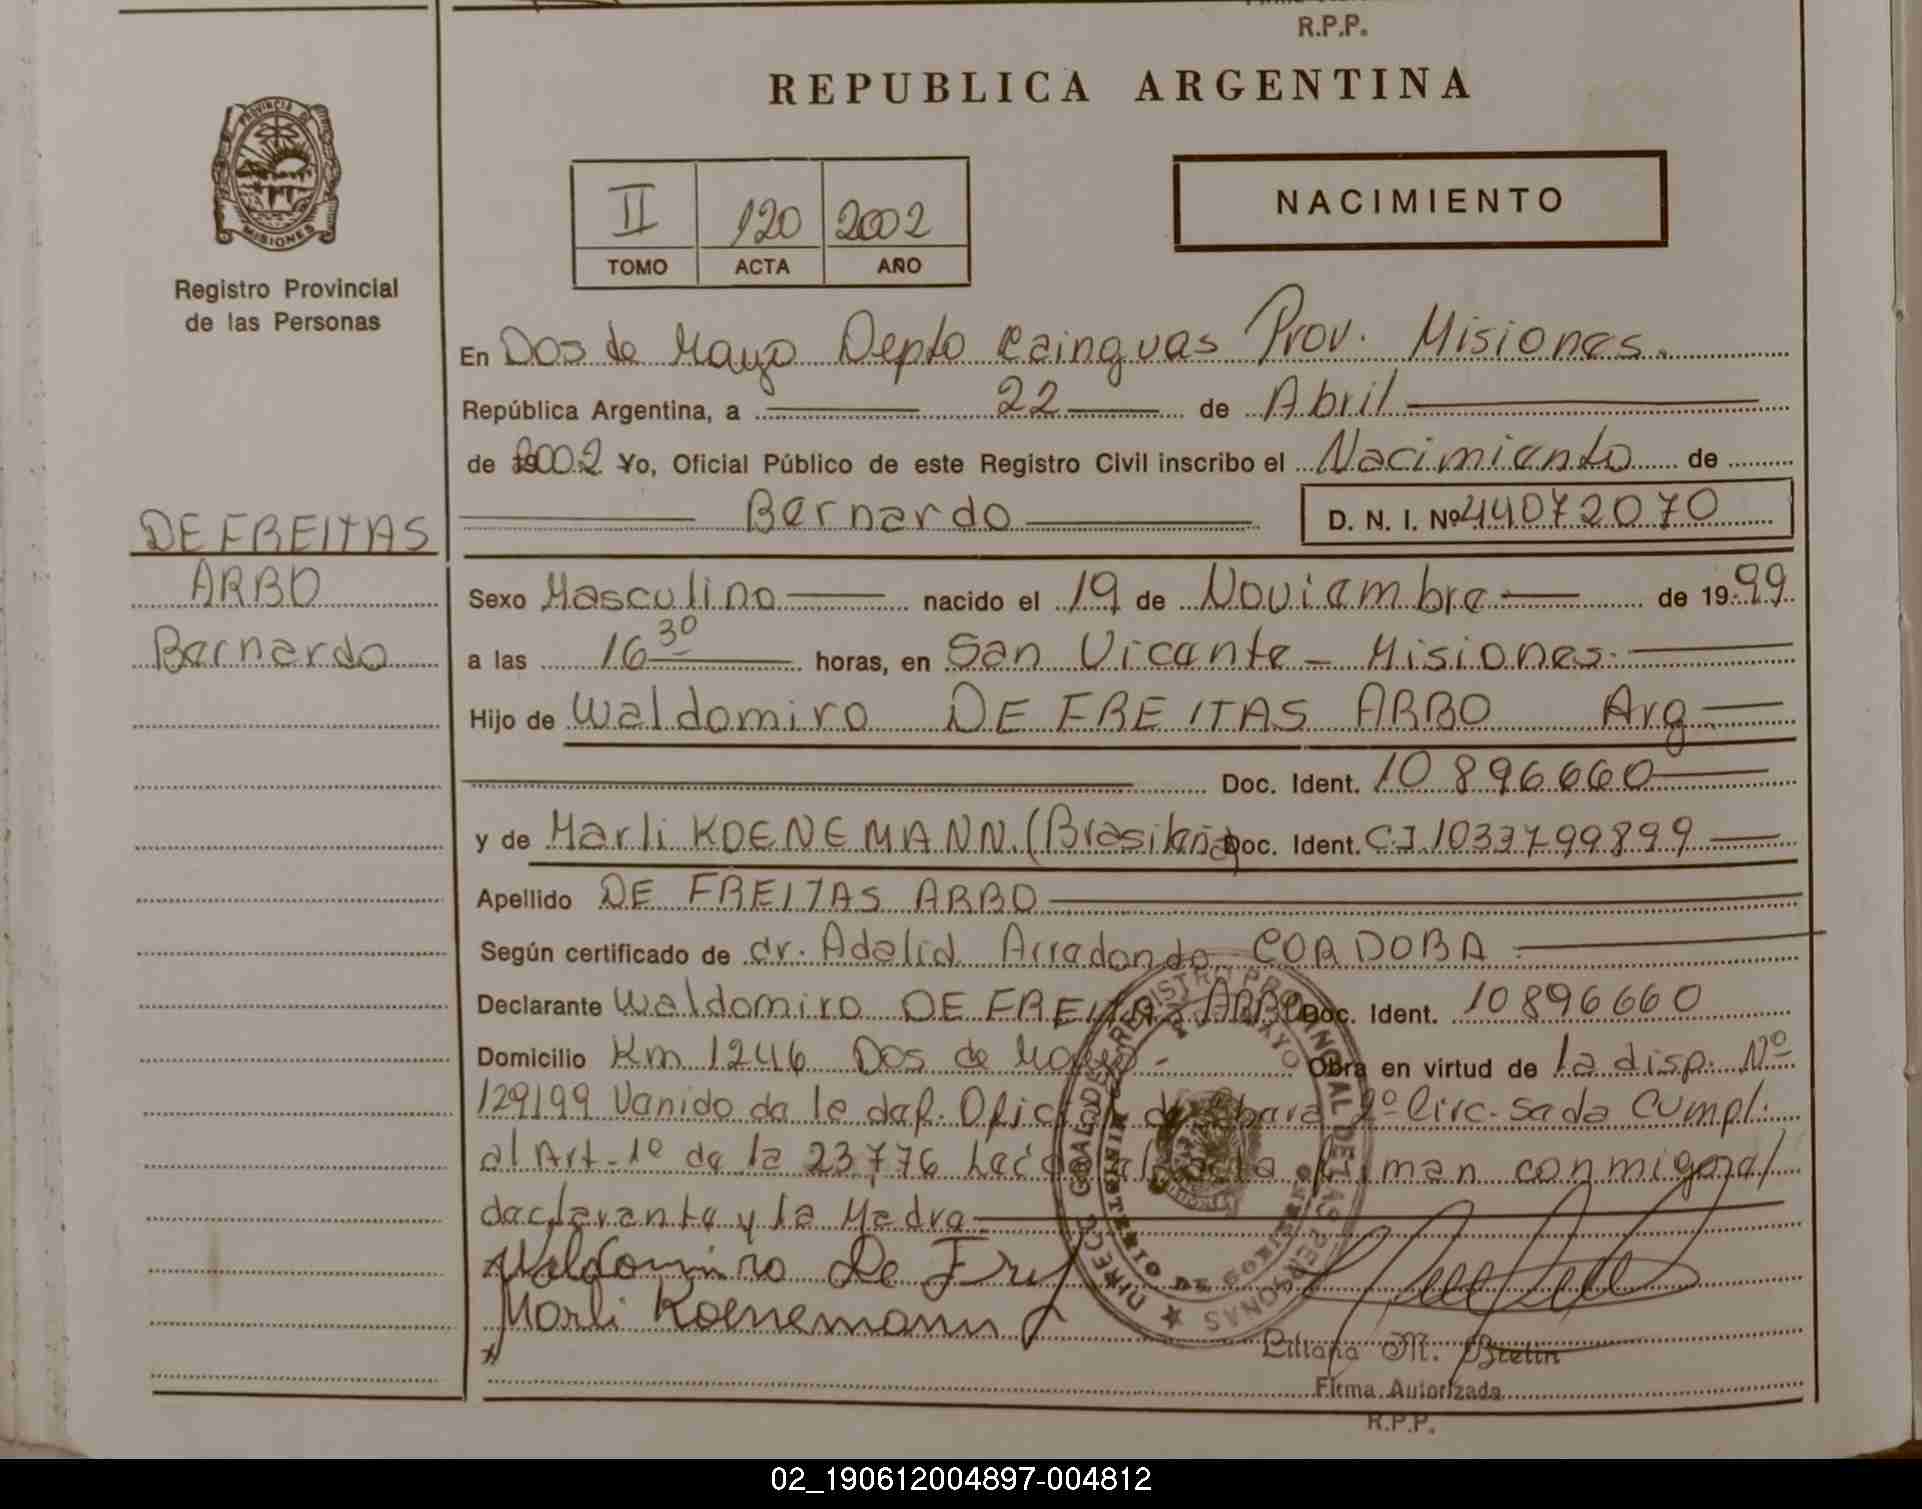 R.P.P.
REPUBLICA ARGENTINA
PROVINCIA DE
MISIONES
Registro Provincial
de las Personas
II 120 2002
TOMO ACTA AÑO
NACIMIENTO
En Dos de Mayo Depto Cainguas Prov. Misiones.
República Argentina, a 22 de Abril
de 2002 Yo, Oficial Público de este Registro Civil inscribo el Nacimiento de
Bernardo D. N. I. Nº 44072070
DE FREITAS
ARBO
Bernardo
Sexo Masculino nacido el 19 de Noviembre de 1999
a las 16 30 horas, en San Vicente - Misiones.
Hijo de Waldomiro DE FREITAS ARBO Arg
Doc. Ident. 10896660
y de Marli KOENEMANN (Brasileña) Doc. Ident. C.I 1033799899
Apellido DE FREITAS ARBO
Según certificado de dr. Adalid Arredondo CORDOBA
Declarante Waldomiro DE FREITAS ARBO Doc. Ident. 10896660
Domicilio Km 1246 Dos de Mayo - Obra en virtud de la disp. Nº
129199 Venido de la def. Oficial de Obera 2º Circ. se da Cumpl.
al Art. 1º de la 23776 firman conmigo el
declarante y la Madre
Waldomiro De Fre
Marli Koenemann
Liliana M. Brelin
Firma Autorizada
R.P.P.
02_190612004897-004812